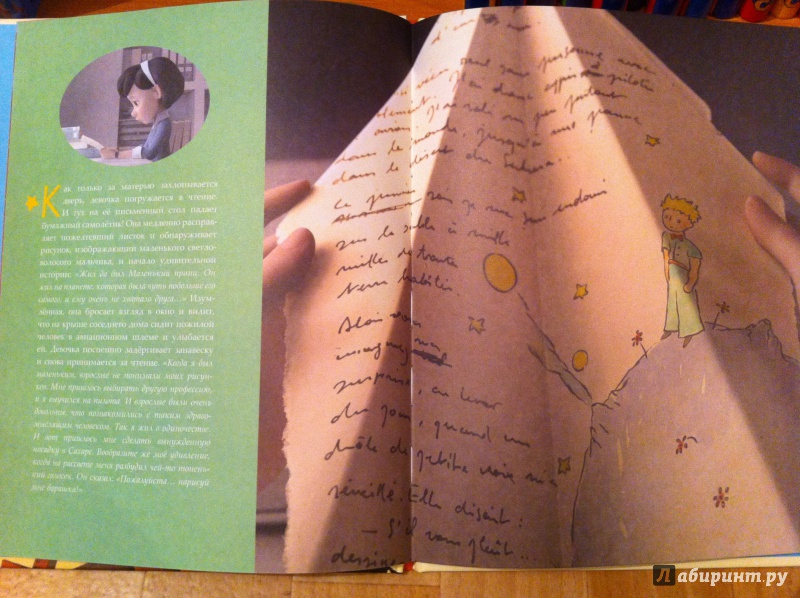 Как только за матерью захлопывается
дверь, девочка погружается в чтение.
И тут на её письменный стол падает
бумажный самолётик! Она медленно расправ-
ляет пожелтевший листок и обнаруживает
рисунок, изображающий маленького светло-
волосого мальчика, и начало удивительной
истории: «Жил да был Маленький принц. Он
жил на планете, которая была чуть побольше его
самого, и ему очень не хватало друга...» Изум-
лённая, она бросает взгляд в окно и видит,
что на крыше соседнего дома сидит пожилой
человек в авиационном шлеме и улыбается
ей. Девочка поспешно задёргивает занавеску
и снова принимается за чтение. «Когда я был
маленьким, взрослые не понимали моих рисун-
ков. Мне пришлось выбирать другую профессию,
и я выучился на пилота. И взрослые были очень
довольны, что познакомились с таким здраво-
мыслящим человеком. Так я жил в одиночестве.
И вот пришлось мне сделать вынужденную
посадку в Сахаре. Вообразите же моё удивление,
когда на рассвете меня разбудил чей-то тонень-
кий голосок. Он сказал: «Пожалуйста... нарисуй
мне барашка!»
dans le désert du Sahara.
sur le sable à mille
mille de toute
terre habitée.
Alors vous
surprise, au lever
du jour, quand une
drôle de petite voix m'a
réveillé. Elle disait :
— S'il vous plaît...
dessine
Лабиринт.ру